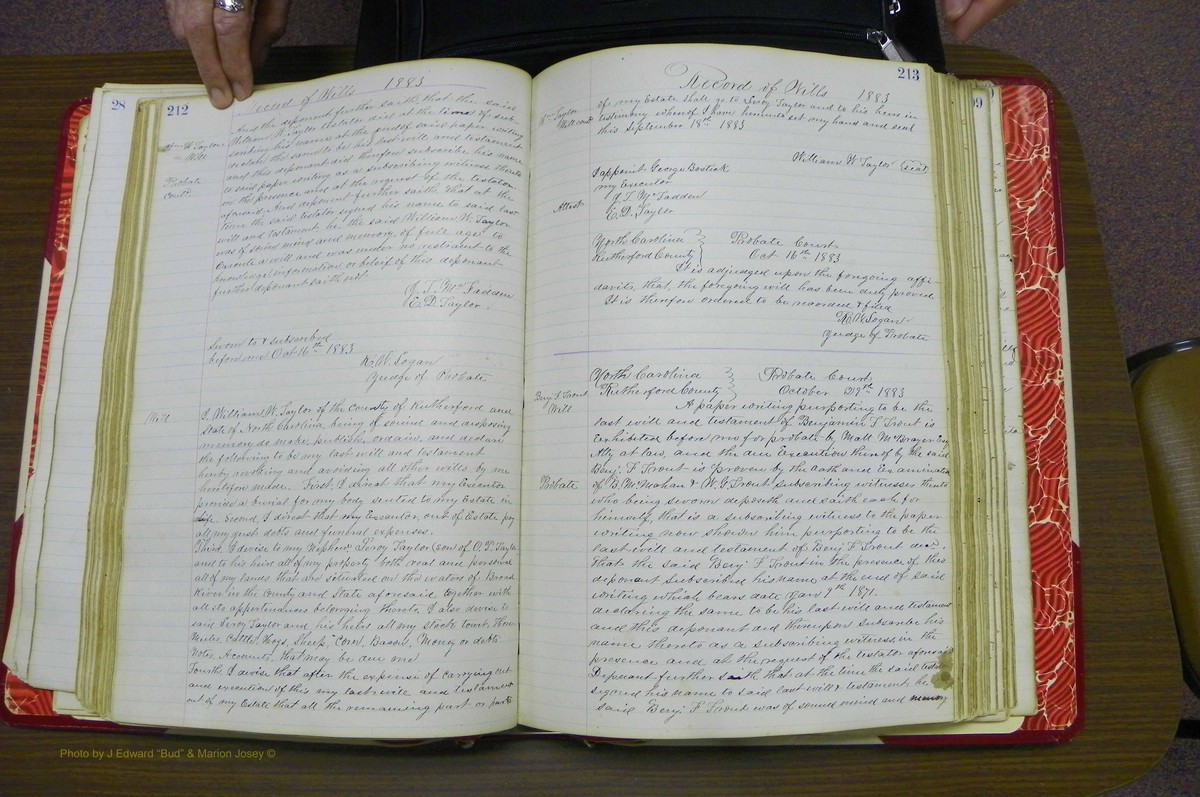 28
212
Record of Wills 1883
Wm W Taylor
Will
Probate
contd
And the deponent further saith that the said
William W. Taylor testator did at the time of sub-
scribing his name at the end of said paper writing
declare the same to be his last will and testament
and this deponent did thereupon subscribe his name
to said paper writing as a subscribing witness thereto
in the presence and at the request of the testator
aforesaid. And deponent further saith that at the
time the said testator signed his name to said last
will and testament he the said William W. Taylor
was of sound mind and memory of full age to
Execute a will and was under no restraint to the
knowledge information or belief of this deponent
further deponent saith not.
J. T. McFadden
E. D. Taylor
Sworn to & subscribed
before me Oct 16th 1883
R. W. Logan
Judge of Probate
Will
I, William W. Taylor of the County of Rutherford and
State of North Carolina being of sound and disposing
memory do make publish, ordain, and declare
the following to be my last will and testament
hereby revoking and avoiding all other wills by me
heretofore made. First, I direct that my Executor
provide a burial for my body suited to my Estate in
life. Second, I direct that my Executor, out of Estate pay
all my just debts and funeral expenses.
Third, I devise to my Nephew Leroy Taylor (son of O. P. Taylor
and to his heirs all of my property both real and personal
all of my lands that are situated on the waters of Broad
River in the County and State aforesaid together with
all its appertenances belonging thereto, I also devise to
said Leroy Taylor and his heirs all my stock, towit, Horses
Mules, Cattle, Hogs, Sheep, Corn, Bacon, Money or debts
Notes, Accounts, that may be due me.
Fourth, I devise that after the expense of carrying out
and execution of this my last will and testament
out of my Estate that all the remaining part or parts
213
Record of Wills 1883
Wm Taylor
Will contd
of my Estate shall go to Leroy Taylor and to his heirs in
testimony whereof I have hereunto set my hand and seal
this September 18th 1883
William W. Taylor (seal)
I appoint George Bostick
my Executor
Attest
J. T. McFadden
E. D. Taylor
North Carolina } Probate Court
Rutherford County } Oct 16th 1883
It is adjudged upon the foregoing affi-
davits, that, the foregoing will has been duly proved
It is therefore ordered to be recorded & filed
R. W. Logan
Judge of Probate
North Carolina } Probate Court
Rutherford County } October 29th 1883
Benj. F. Trout
Will
A paper writing purporting to be the
last will and testament of Benjamin F Trout is
Exhibited before me for probate by Matt McBrayer Esq
Atty at law, and the due Execution thereof by the said
Benj. F Trout is proven by the oath and Examination
Probate
of B. McMahan & W. G. Trout subscribing witnesses thereto
who being sworn deposeth and saith each for
himself, that is a subscribing witness to the paper
writing now shown him purporting to be the
last will and testament of Benj F Trout decd.
That the said Benj. F Trout in the presence of this
deponent subscribed his name at the end of said
writing which bears date Jany 9th 1871.
declaring the same to be his last will and testament
and this deponent did thereupon subscribe his
name thereto as a subscribing witness, in the
presence and at the request of the testator aforesaid
Deponent further saith that at the time the said testator
signed his name to said last will & testament, he
said Benj. F Trout was of sound mind and memory
Photo by J Edward "Bud" & Marion Josey ©